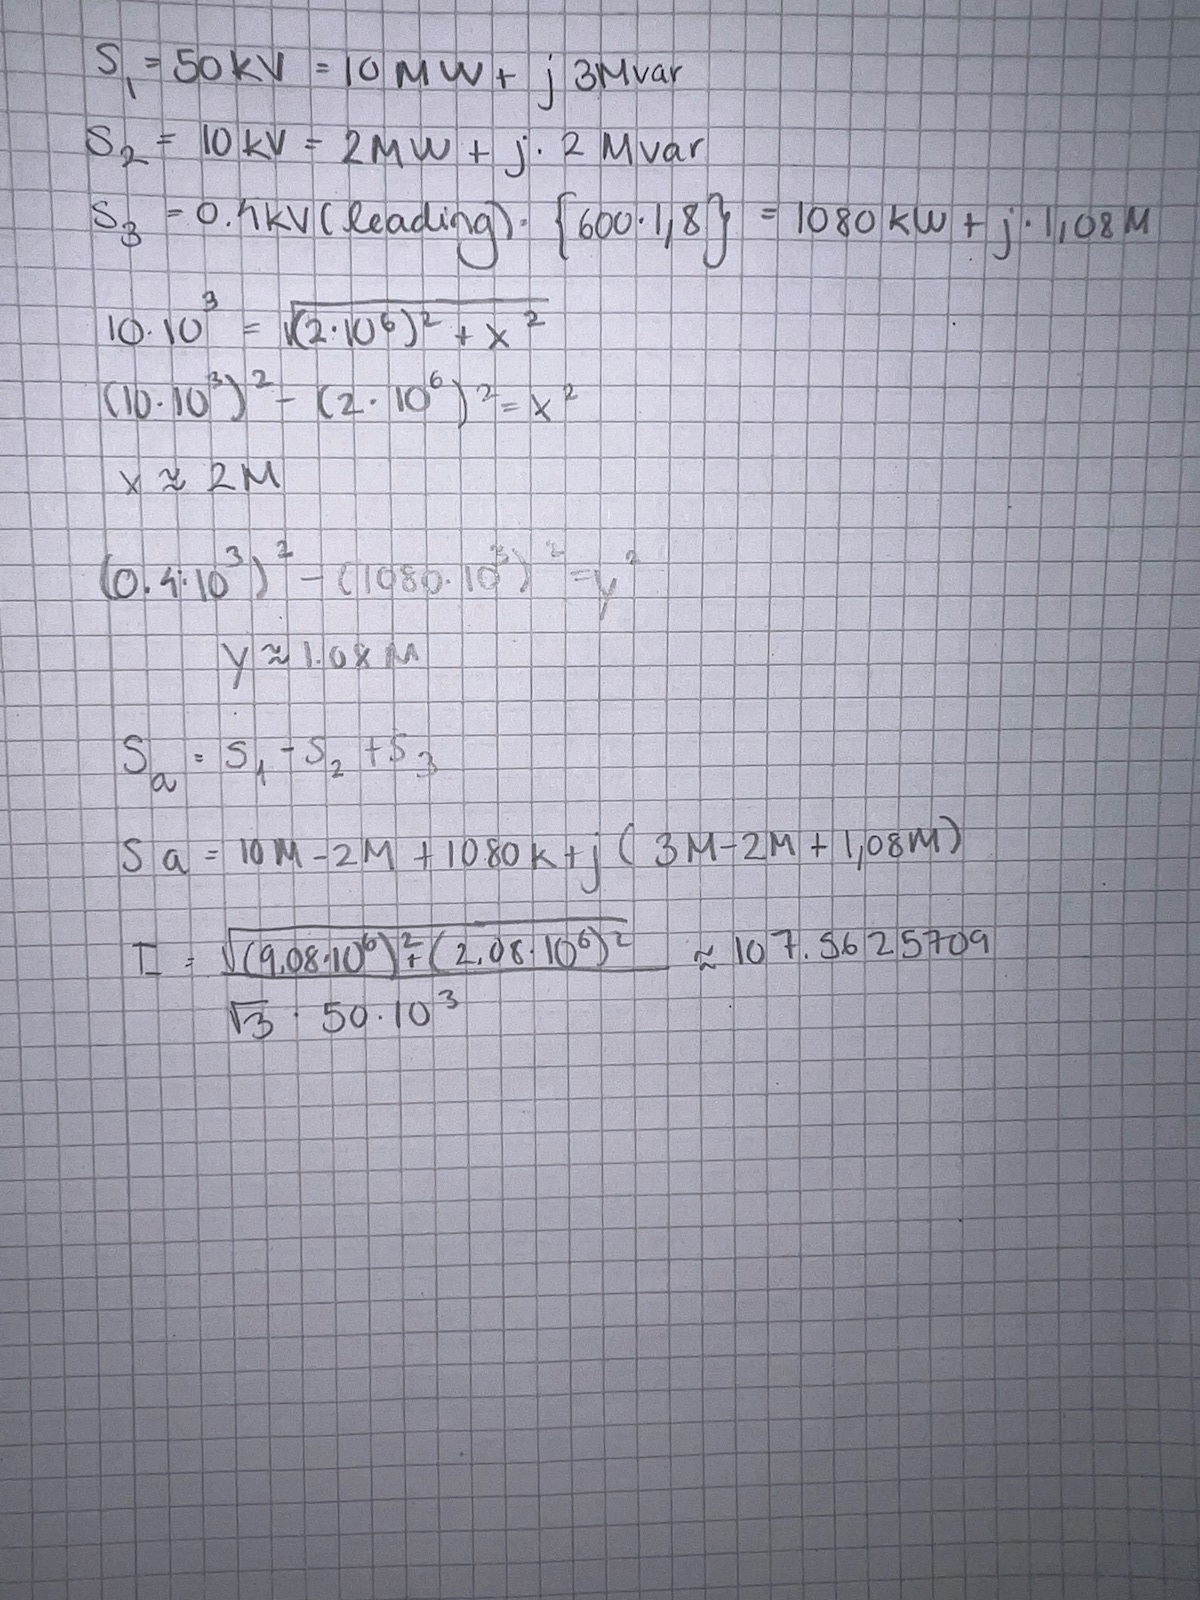 S₁ = 50kV = 10MW + j 3Mvar
S₂ = 10kV = 2MW + j. 2 Mvar
S₃ = 0.4kV (leading). {600·1,8} = 1080kW + j·1,08M
10·10³ = √((2·10⁶)² + x²)
(10·10³)² - (2·10⁶)² = x²
x ≈ 2M
(0.4·10³)² - (1080·10³)² = y²
y ≈ 1.08M
Sₐ = S₁ - S₂ + S₃
Sa = 10M - 2M + 1080k + j (3M - 2M + 1,08M)
I = √((9.08·10⁶)² + (2.08·10⁶)²) / √3 · 50·10³ ≈ 107.5625709